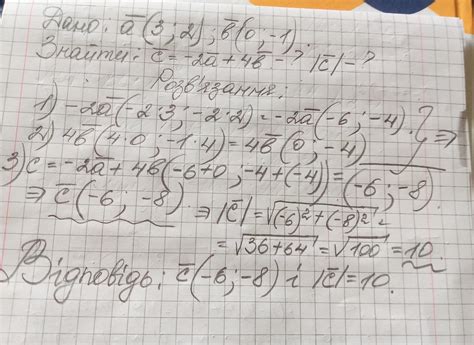 Дано: a̅(3; 2); b̅(0; -1).
Знайти: c̅ = -2a̅ + 4b̅ - ? |c̅| - ?
Розв'язання:
1) -2a̅(-2·3; -2·2) = -2a̅(-6; -4).
2) 4b̅(4·0; -1·4) = 4b̅(0; -4) } ⇒
3) c = -2a̅ + 4b̅(-6+0; -4+(-4)) = (-6; -8)
⇒ c̅(-6; -8). ⇒ |c̅| = √((-6)²+(-8)²) =
= √(36+64) = √100 = 10.
Відповідь: c̅(-6; -8) і |c̅| = 10.